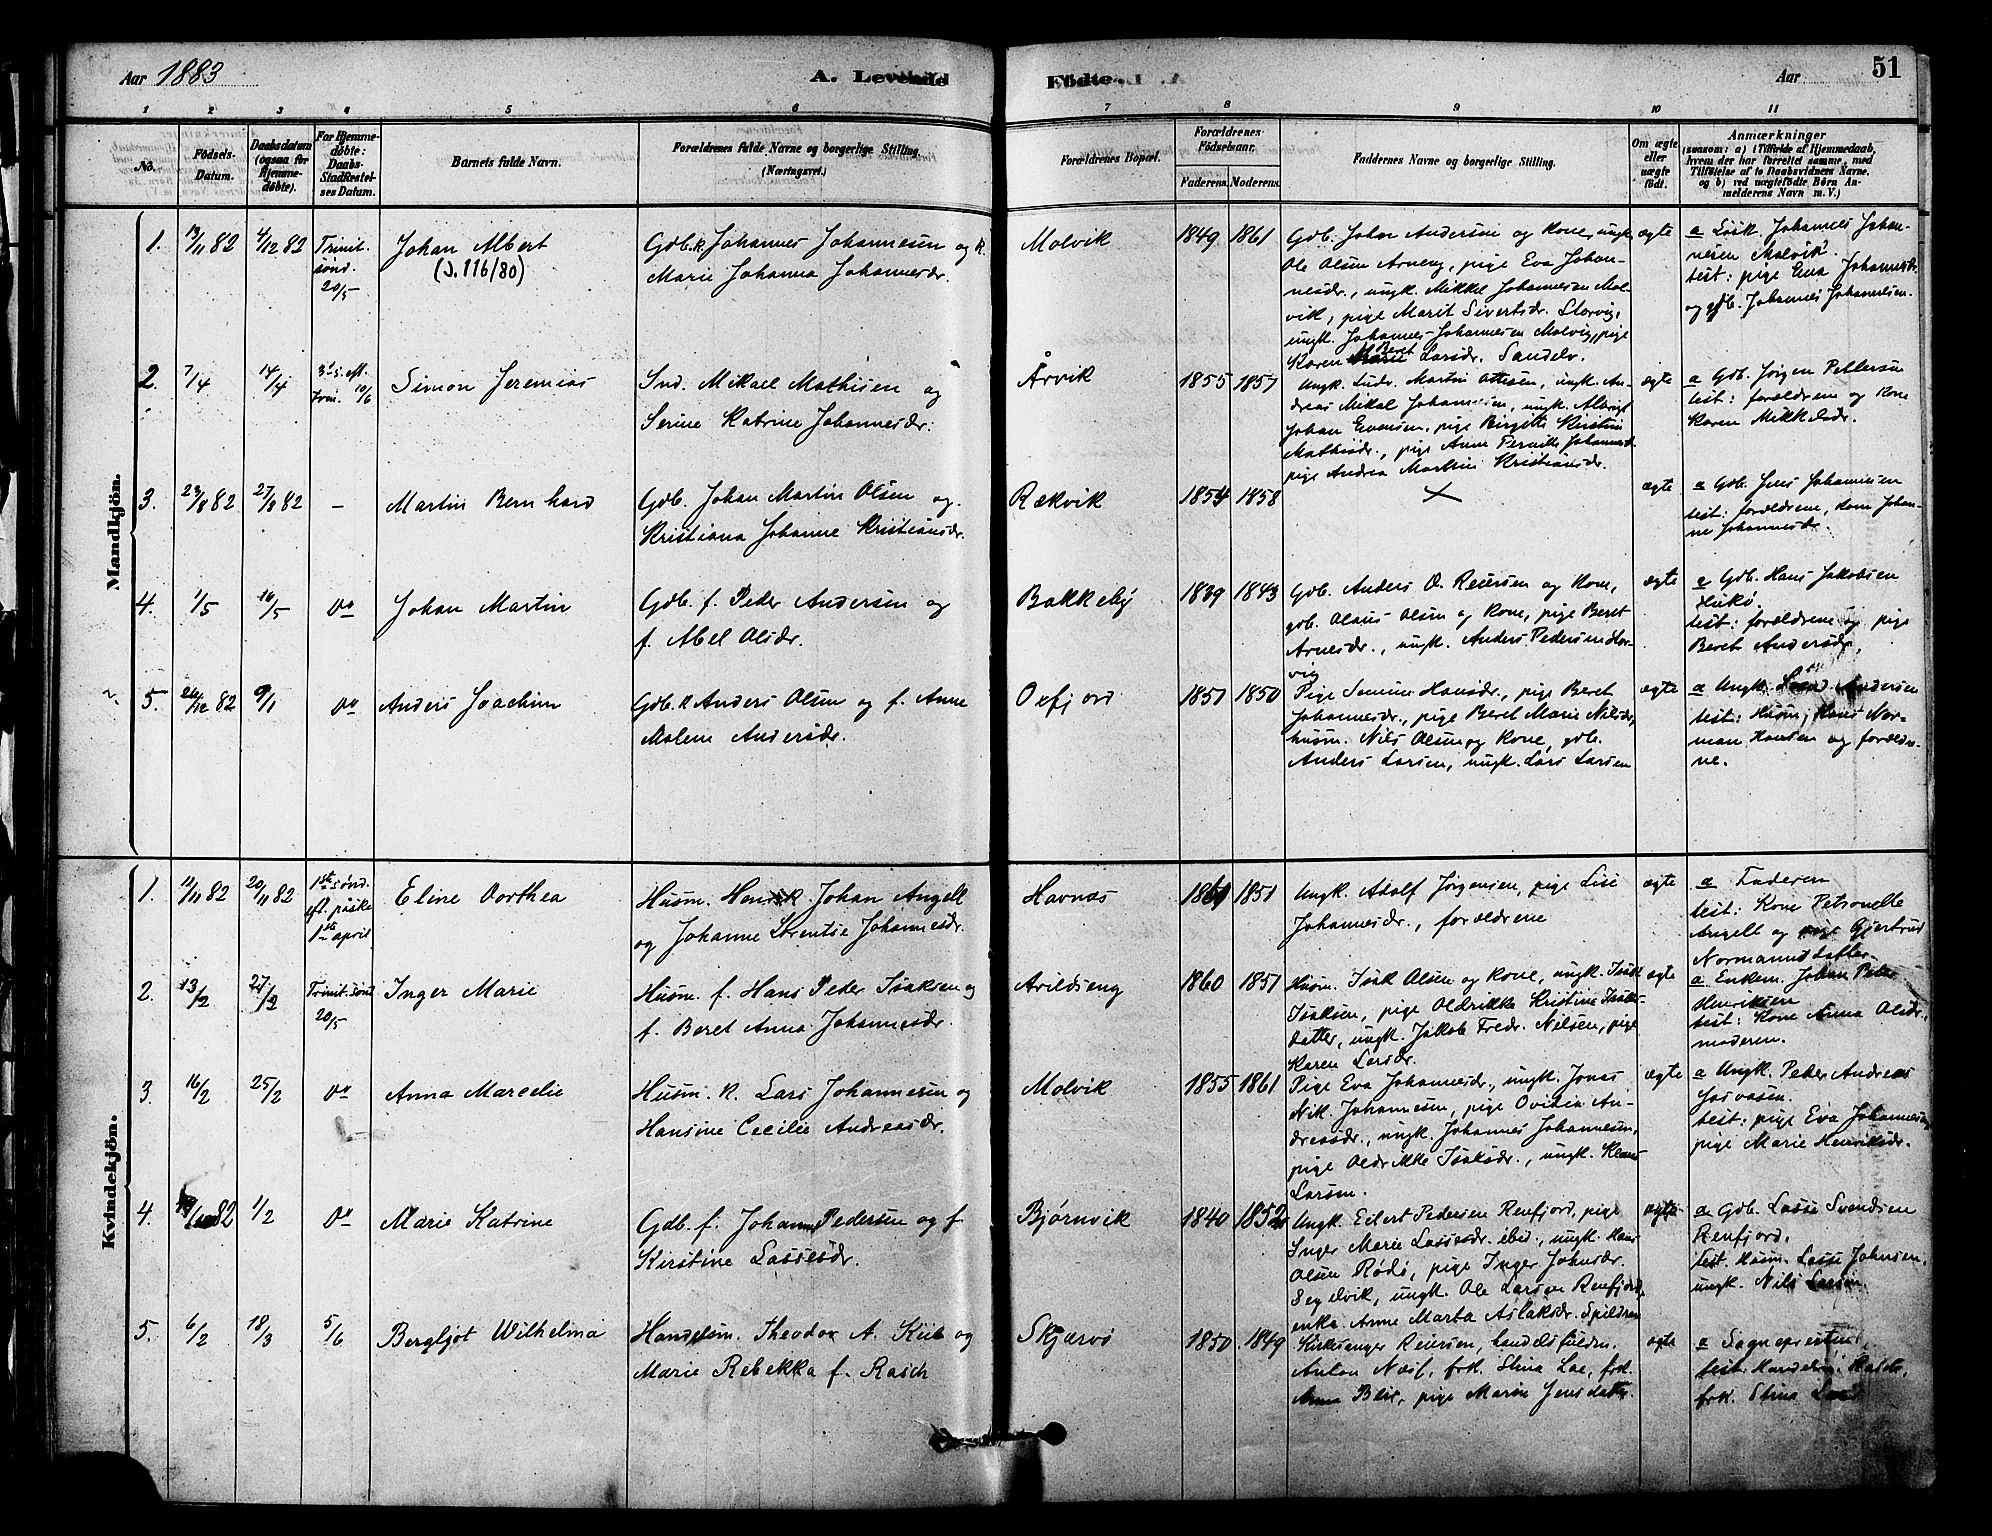 Aar 1883
A. Levende
Födte.
Aar
51
1 2 3 4 5 6 7 8 9 10 11
No.
Födsels-
Datum.
Daabsdatum
(ogsaa for
Hjemme-
döbte).
For Hjemme-
döbte:
Daabs-
Stadfæstel-
ses Datum.
Barnets fulde Navn.
Forældrenes fulde Navne og borgerlige Stilling.
(Næringsvei.)
Forældrenes Bopæl.
Forældrenes
Födselsaar.
Faderens. Moderens.
Faddernes Navne og borgerlige Stilling.
Om ægte
eller
uægte
födt.
Anmærkninger
(saasom: a) i Tilfælde af Hjemmedaab,
hvem der har forrettet samme, med
Tilföielse af to Daabsvidners Navne,
og b) ved uægtefödte Börn An-
melderens Navn m. V.)
Mandkjön.
1.
/11 82
4/12 82
Trinit.
sønd.
20/5
Johan Albert
(J. 116/80)
Gdb. k. Johannes Johannesen og k.
Marie Johanna Johannesdr.
Molvik
1849 1861
Gdb. Johan Andersen og Kone, ungk.
Ole Olsen Arneng, pige Eva Johan-
nesdr., ungk. Mikkel Johannesen Mol-
vik, pige Marit Sivertsdr. Storvig,
ungk. Johannes Johannesen Molvig, pige
Karen Beret Larsdr. Sandelv.
ægte
a Løsk. Johannes Johan-
nesen Molvik.
test: pige Eva Johannesdr.
og gdb. Johannes Johannesen.
2.
7/4
14/4
3die s. eft.
Trin. 10/6
Simon Jeremias
Ind. Mikael Mathisen og
Serine Katrine Johannesdr.
Årvik
1855 1857
Ungk. Ludv. Martin Ottesen, ungk. An-
dreas Mikal Johannesen, ungk. Albrigt
Johan Evensen, pige Birgitte Kirstine
Mathisdr., pige Anne Pernille Johannesd.
pige Andrea Martine Kristiansdr.
ægte
a Gdb. Jørgen Pettersen
test: forældrene og Kone
Karen Mikkelsdr.
3.
23/8 82
27/8 82
-
Martin Bernhard
Gdb. Johan Martin Olsen og
Kristiana Johanne Kristiansdr.
Rækvik
1854 1858
ægte
a Gdb. Jens Johannesen
test: forældrene, Kone Johan-
ne Johannesdr.
4.
1/5
16/5
do
Johan Martin
Gdb. f. Peder Andersen og
f. Abel Olsdr.
Bakkeby
1839 1843
Gdb. Anders O. Reiersen og Kone,
gdb. Olaus Olsen og Kone, pige Beret
Arnesdr., ungk. Anders Pedersen Stor-
vig
ægte
a Gdb. Hans Jakobsen
test: forældrene og pige
Beret Andersdr.,
5.
26/12 82
9/1
do
Anders Joachim
Gdb. k. Anders Olsen og f. Anne
Malene Andersdr.
Oxfjord
1857 1850
Pige Semine Hansdr., pige Beret
Johannesdr., pige Beret Marie Nilsdr.,
husm. Nils Olsen og Kone, gdb.
Anders Larsen, ungk. Lars Larsen
ægte
a Ungk. Andersen
test: Husm. Hans Nor-
man Hansen og forældre-
ne.
Kvindekjön.
1.
11/11 82
20/11 82
1ste sønd.
eft. påske
1ste april
Eline Dorthea
Husm. Henrik Johan Angell
og Johanne Lorentse Johannesdr.
Havnæs
1861 1851
Ungk. Adolf Jørgensen, pige Lise
Johannesdr., forældrene
ægte
a Faderen
test: Kone Petronelle
Angell og pige Gjertrud
Normannsdatter
2.
13/2
27/2
Trinit. sønd
20/5
Inger Marie
Husm. f. Hans Peder Isaksen og
f. Beret Anna Johannesdr.
Arildseng
1860 1857
Husm. Isak Olsen og Kone, ungk. Isak
Isaksen, pige Oldrikke Kristine Isaks-
datter, ungk. Jakob Fredr. Nilsen, pige
Karen Larsdr.
ægte
a Enkem. Johan Peter
Henriksen
test: Kone Anna Olsdr.,
moderen.
3.
16/2
25/2
do
Anna Marcelie
Husm. k. Lars Johannesen og
Hansine Cecilie Andreasdr.
Molvik
1855 1861
Pige Eva Johannesdr., ungk. Jonas
Nik. Johannesen, pige Ovidia An-
dreasdr., ungk. Johannes Johannesen,
pige Oldrikke Isaksdr., ungk. Klaus
Larsen.
ægte
a Ungk. Peter Andreas
test: pige Eva Johannesdr.
pige Marie Henriksdr.
4.
82
1/2
do
Marie Katrine
Gdb. f. Johan Pedersen og f.
Kirstine Lassesdr.
Bjørnvik
1840 1852
Ungk. Eilert Pedersen Renfjord, pige
Inger Marie Lassesdr. ibid., ungk. Hans
Olsen Rødø, pige Inger Johnsdr.
Segelvik, ungk. Ole Larsen Renfjord,
enke Anne Marta Aslaksdr. Spildren
ægte
a Gdb. Lasse Svendsen
Renfjord.
test. Husm. Lasse Johnsen,
ungk. Nils Larsen.
5.
6/2
18/3
5/6
Bergljot Wilhelma
Handelsm. Theodor A. Kiil og
Marie Rebekka f. Rasch
Skjærvø
1850. 1849
Kirkesanger Reiersen, handelsfuldm.
Anton Næss, frk. Stina Lae, frk.
Anna Blix, pige Marie Jensdatter.
ægte
a Sognepresten
test Handelsm. Rasch,
frk. Stina